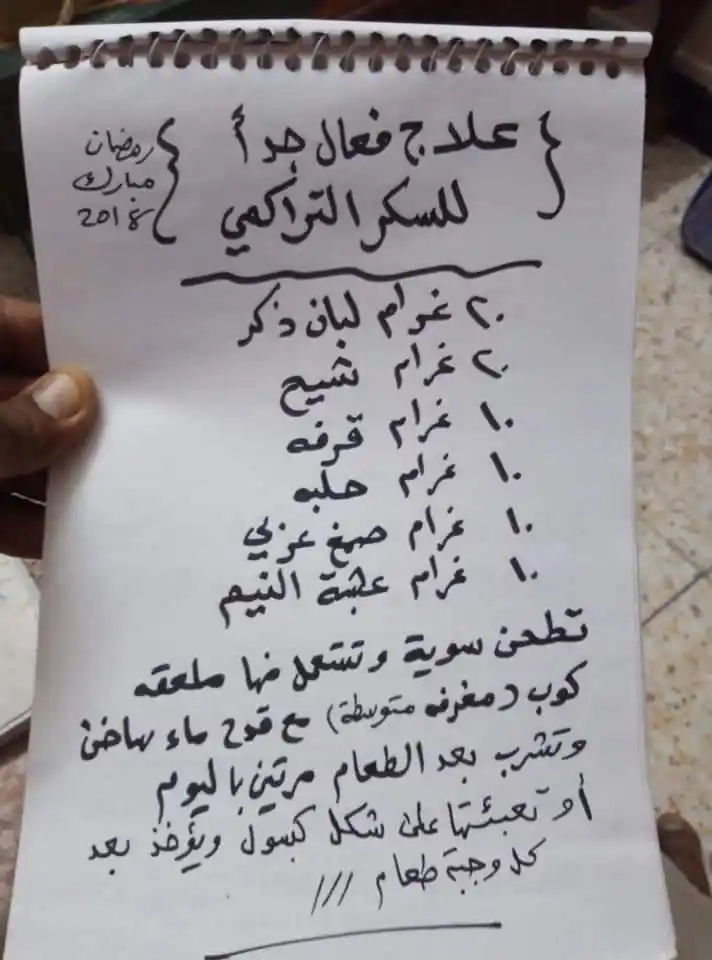 { علاج فعال جداً
للسكر التراكمي
} رمضان
مبارك
2018 {
٢٠ غرام لبان ذكر
٢٠ غرام شيح
١٠ غرام قرفه
١٠ غرام حلبه
١٠ غرام صمغ عربي
١٠ غرام عشبة النيم
تطحن سوية وتستعمل منها ملعقه
كوب (مغرفه متوسطة) مع قدح ماء ساخن
وتشرب بعد الطعام مرتين باليوم
أو تعبئتها على شكل كبسول ويؤخذ بعد
كل وجبة طعام ///